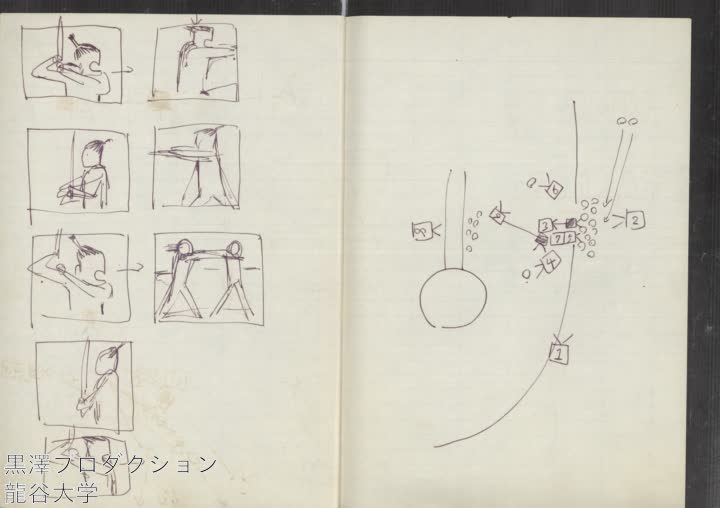 6
2
3
8
2
7 9
4
1
黒澤プロダクション
龍谷大学